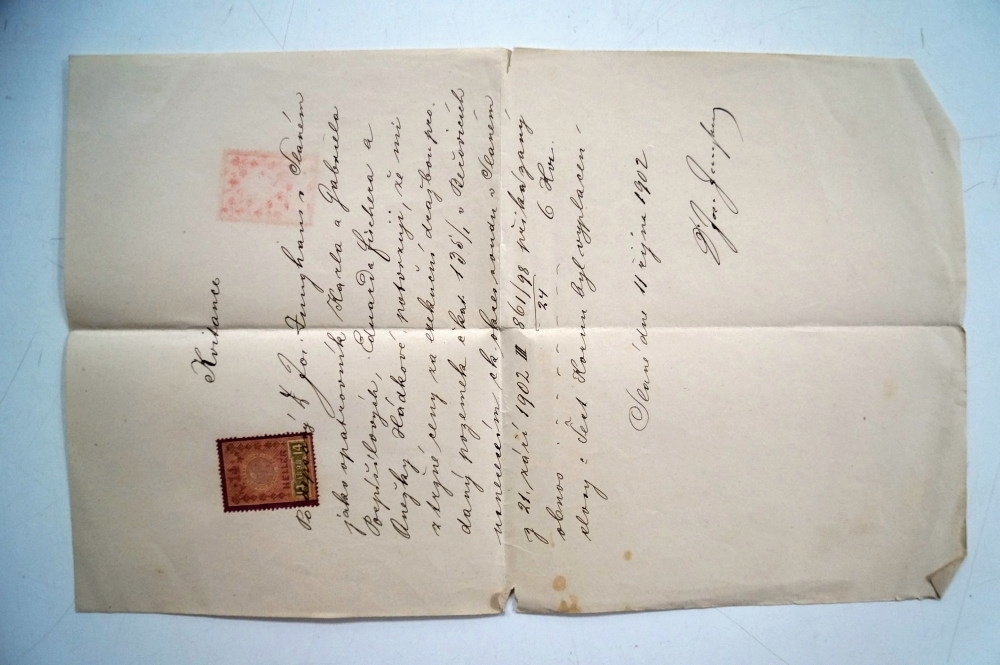 Kvitance
HELLER
Jos. Junghans v Slaném
jako opatrovník Karla a Gabriela
Pospíšilových, Eduarda Fischera a
Anežky Hádkové potvrzuji, že mi
z tržné ceny za exekuční dražbou pro-
daný pozemek čkat 135/1 v Řečovicích
usnesením ck. okres. soudu v Slaném
z 21. září 1902 III 861/98 přikázaný
24
obnos - - - - - - - 6 Kor.
slovy: Šest Korun byl vyplacen
Slaný dne 11 října 1902